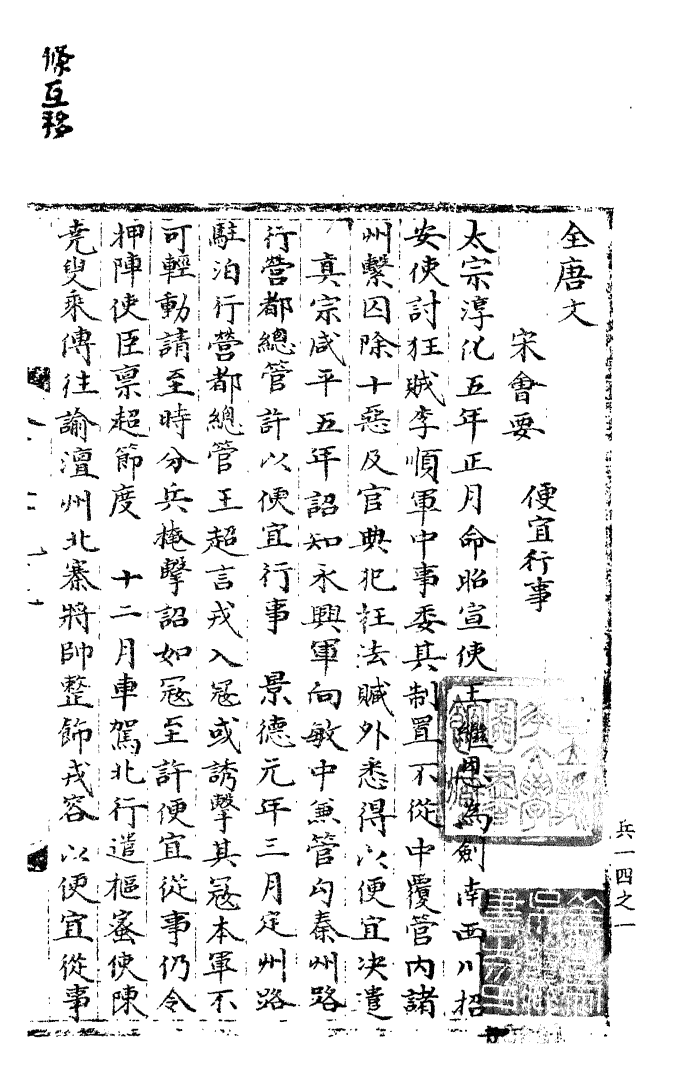 條互移
全唐文
宋會要
便宜行事
太宗淳化五年正月命昭宣使王繼恩為劍南西川招
安使討狂賊李順軍中事委其制置不從中覆管內諸
州繫囚除十惡及官典犯枉法贓外悉得以便宜决遣
真宗咸平五年詔知永興軍向敏中兼管勾秦州路
行營都總管許以便宜行事　景德元年三月定州路
駐泊行營都總管王超言戎入寇或誘擊其寇本軍不
可輕動請至時分兵掩擊詔如寇至許便宜從事仍令
押陣使臣禀超節度　十二月車駕北行遣樞密使陳
堯叟乘傳往諭澶州北寨將帥整飾戎容以便宜從事
兵一四之一